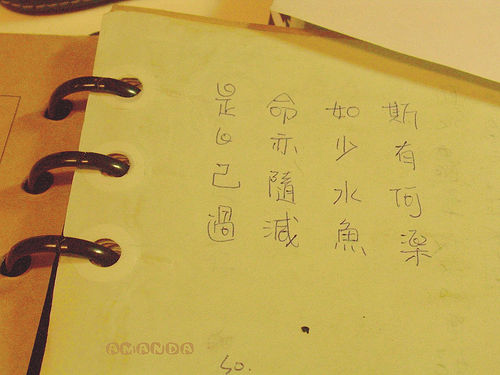 是日己過
命亦隨減
如少水魚
斯有何樂
AMANDA
so.